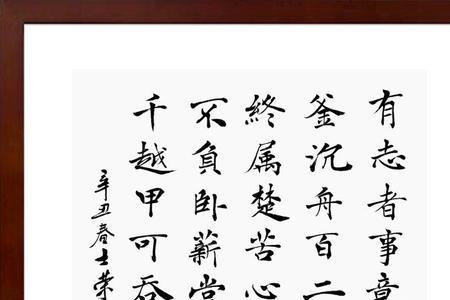 有志者事竟
釜沉舟百二
終属楚苦心
不負卧薪
千越甲可吞
辛丑春士荣